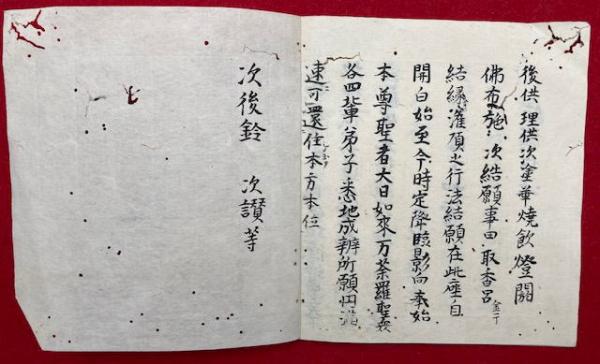 後供 理供次塗華燒飲燈閼
佛布施 次結願事曰 取香呂 金
結縁灌頂之行法結願在此座自
開白始至今時定降臨影向奉始
本尊聖者大日如來万荼羅聖衆
各四輩弟子悉地成辨所願円満
速可還住本方本位
次後鈴 次讃等